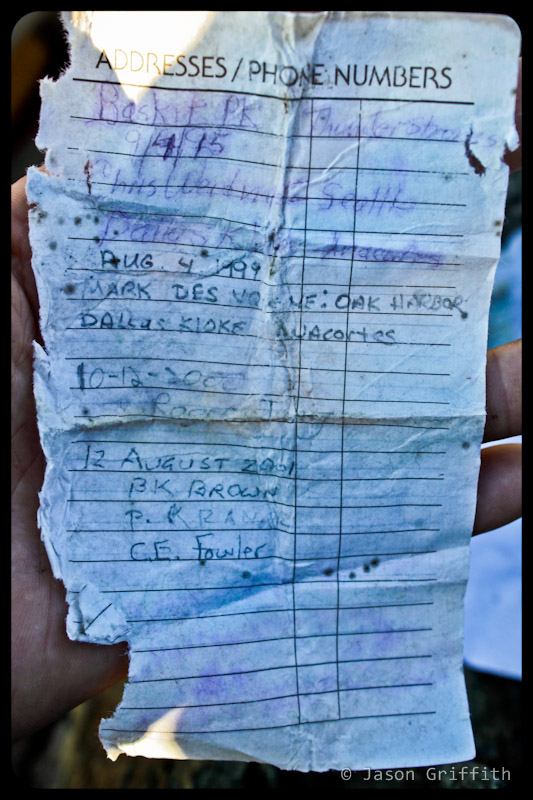 ADDRESSES / PHONE NUMBERS
Baskit PK Thunderstorms
9/4/95
Chris Seattle
Dallas K Anacortes
AUG. 4 '99
MARK DES VOIGNE: OAK HARBOR
DALLAS KLOKE ANACORTES
10-12-2000
Roger
12 AUGUST 2001
BK BROWN
P. KRANZ
C.E. Fowler
© Jason Griffith